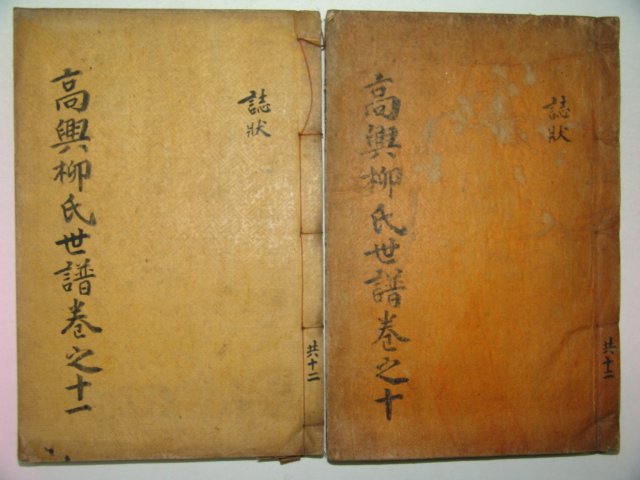 高興柳氏世譜卷之十一
誌狀
共十二
高興柳氏世譜卷之十
誌狀
共十二